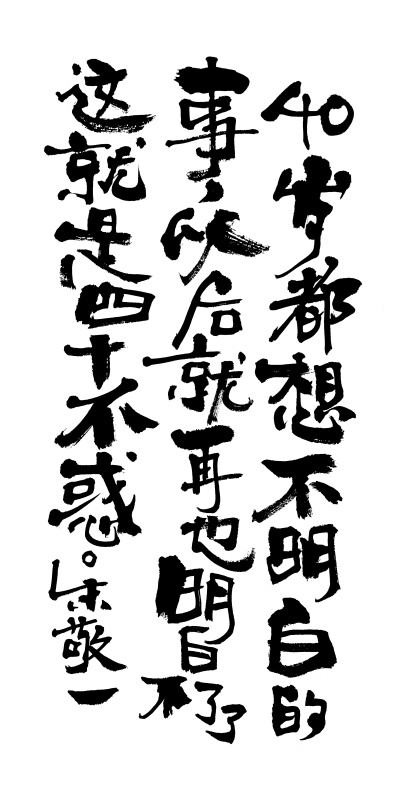 40岁都想不明白的
事，以后就再也明白不了了
这就是四十不惑。朱敬一